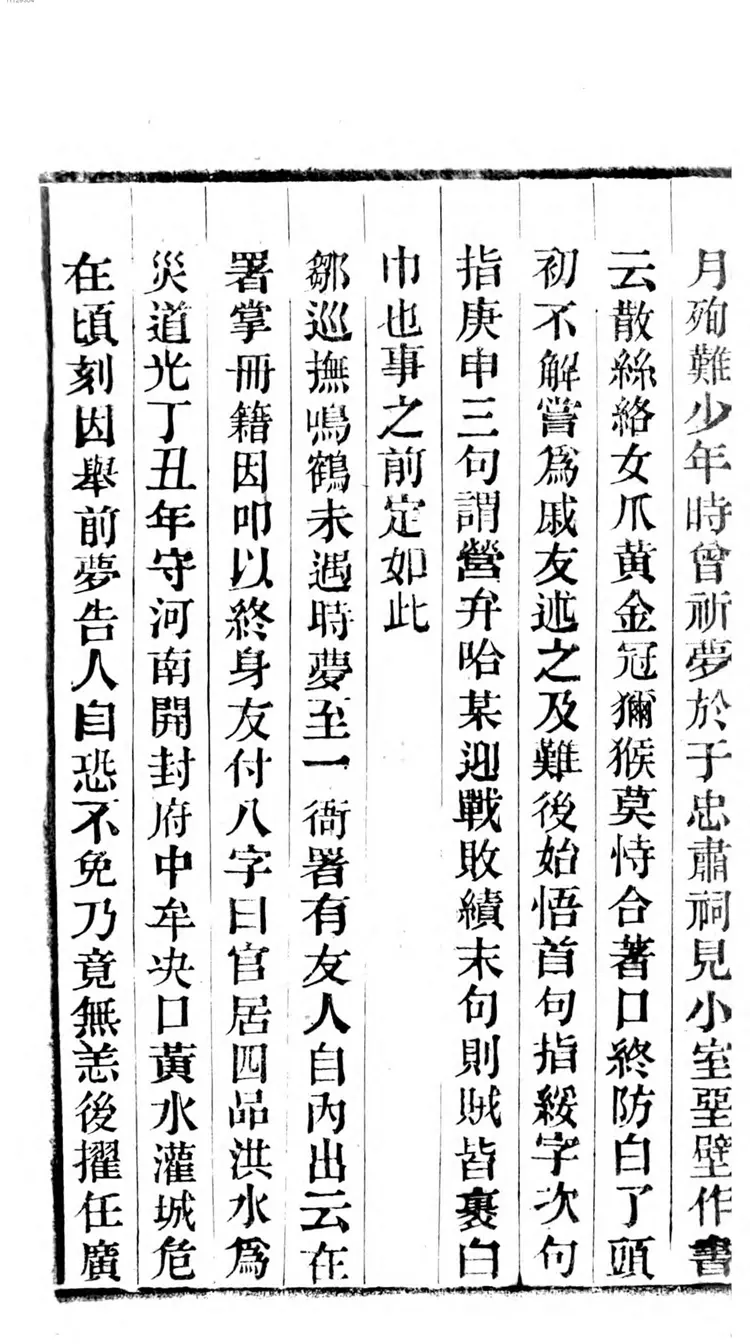 月殉難少年時曾祈夢於于忠肅祠見小室堊壁作書
云散絲絡女爪黄金冠獼猴莫恃合著口終防白了頭
初不解嘗爲戚友述之及難後始悟首句指綏字次句
指庚申三句謂營弁哈某迎戰敗績末句則賊皆裹白
巾也事之前定如此
鄒巡撫鳴鶴未遇時夢至一衙署有友人自內出云在
署掌冊籍因叩以終身友付八字曰官居四品洪水爲
災道光丁丑年守河南開封府中牟决口黃水灌城危
在頃刻因舉前夢告人自恐不免乃竟無恙後擢任廣